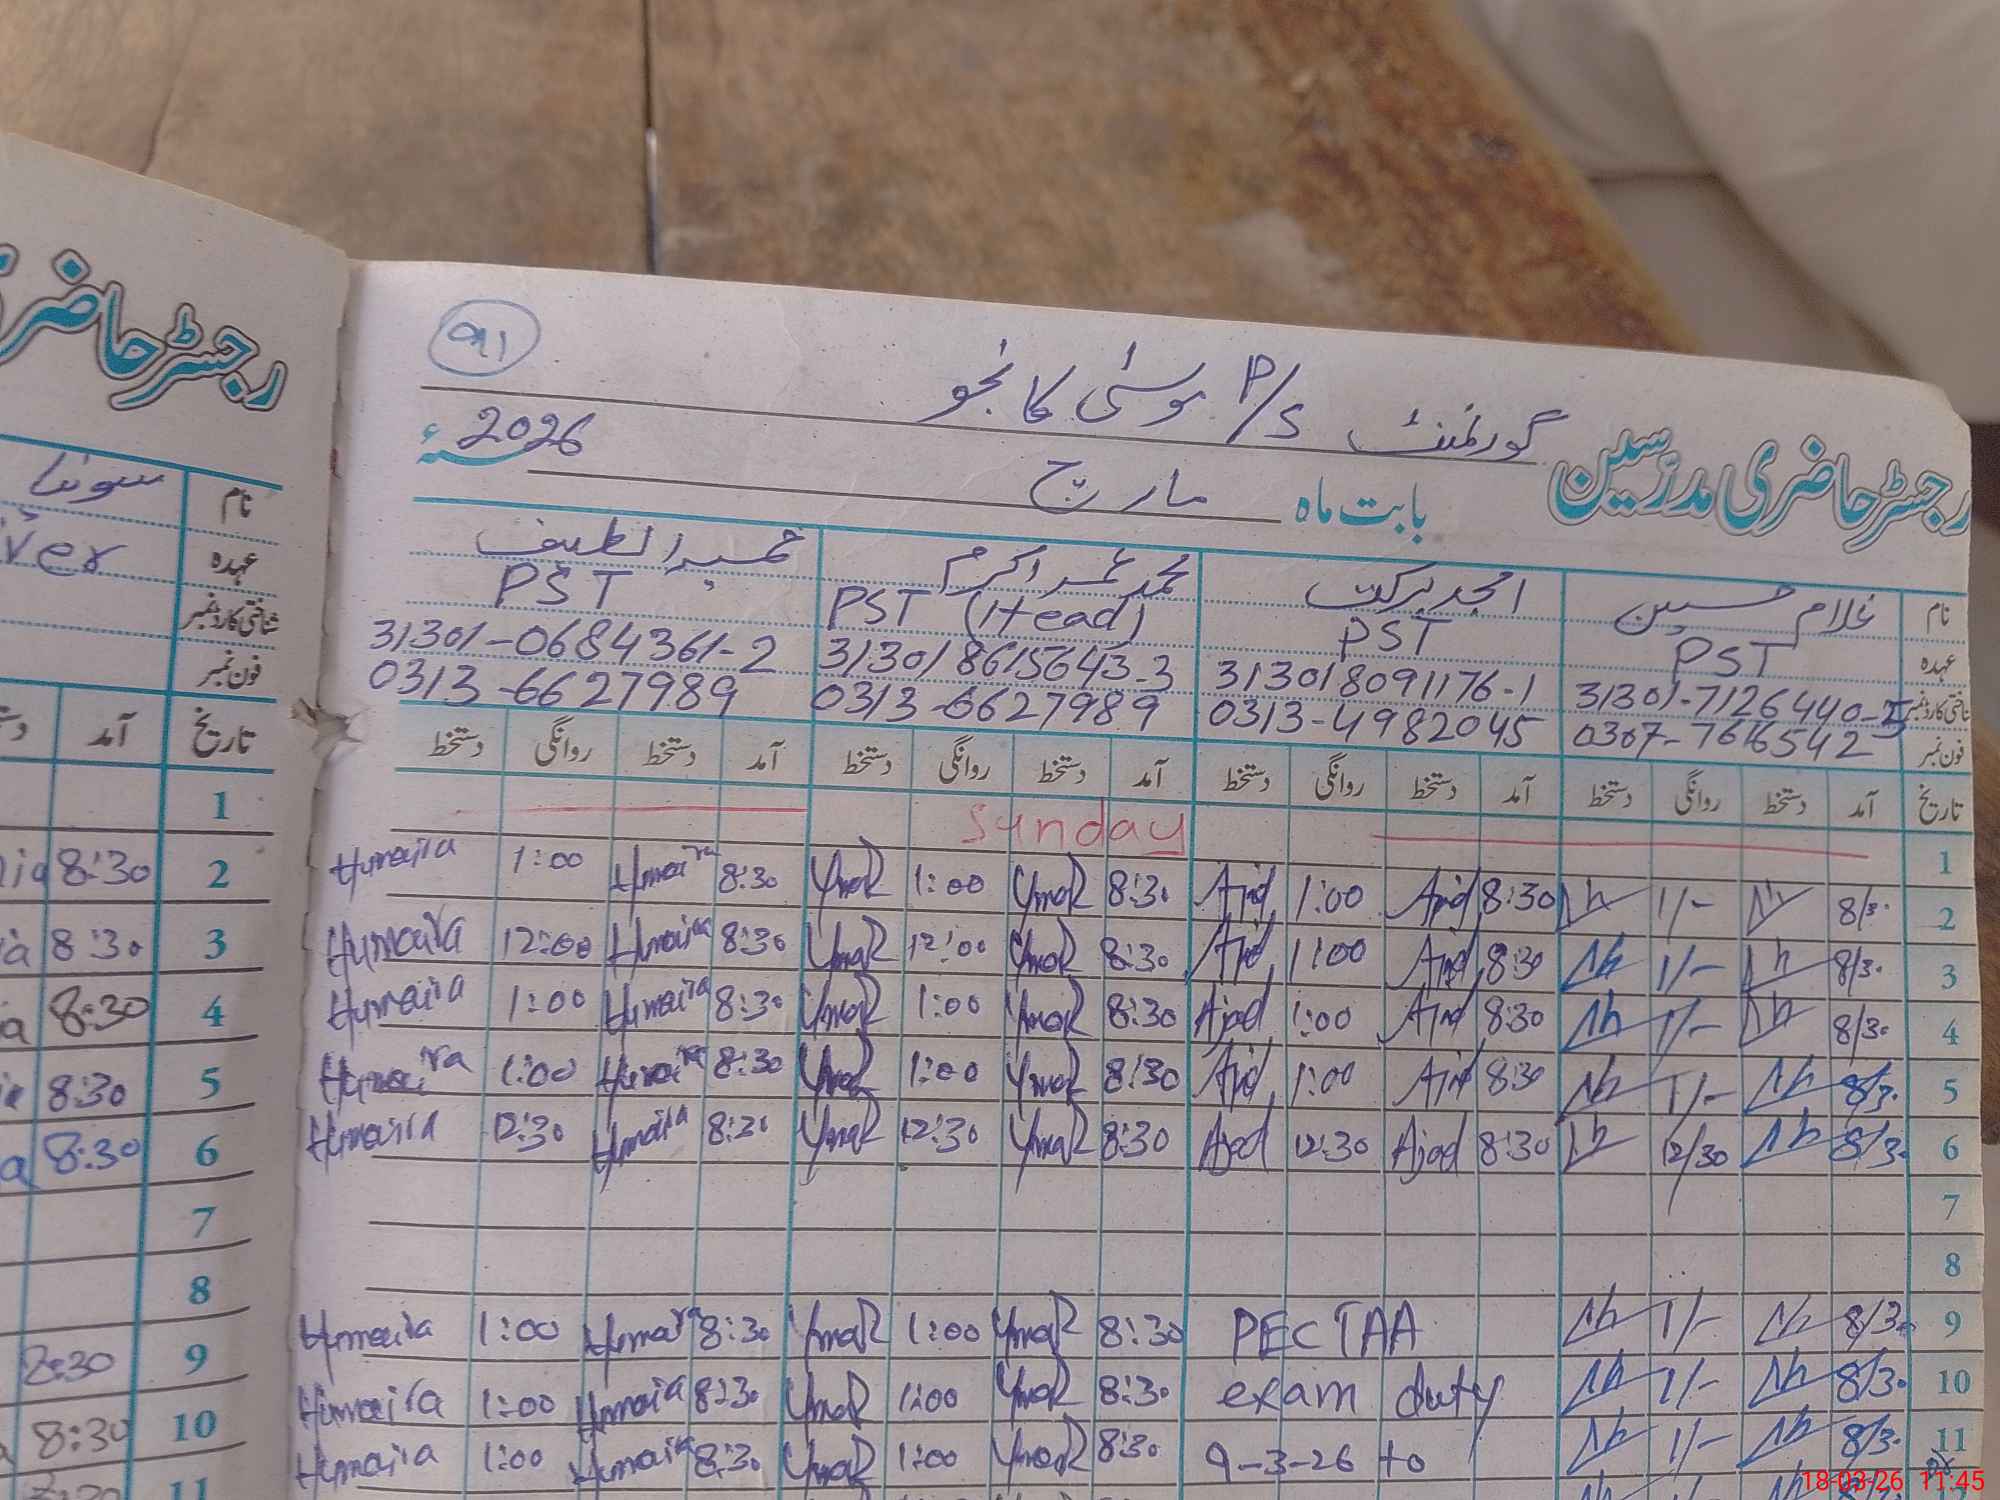 رجسٹر حاضری
نام سونیا
عہدہ
شناختی کارڈ نمبر
فون نمبر
تاریخ آمد
1
2 8:30
3 8:30
4 8:30
5 8:30
6 8:30
7
8
9 8:30
10 8:30
11
91
رجسٹر حاضری مدرسین گورنمنٹ P/S موسیٰ کانجو
بابت ماہ مارچ سنہ 2026ء
نام غلام حسین امجد برکت محمد عمر اکرم حمیرا لطیف
عہدہ PST PST PST (Head) PST
شناختی کارڈ نمبر 31301-7126440-5 313018091176-1 313018615643-3 31301-0684361-2
فون نمبر 0307-7616542 0313-4982045 0313-6627989 0313-6627989
تاریخ آمد دستخط روانگی دستخط آمد دستخط روانگی دستخط آمد دستخط روانگی دستخط آمد دستخط روانگی دستخط
1 Sunday
Humaira 1:00 Humaira 8:30 Umar 1:00 Umar 8:30 1:00 8:30 1/- 8/30 2
Humaira 12:00 Humaira 8:30 Umar 12:00 Umar 8:30 1:00 8:30 1/- 8/30 3
Humaira 1:00 Humaira 8:30 Umar 1:00 Umar 8:30 Ajad 1:00 8:30 1/- 8/30 4
Humaira 1:00 Humaira 8:30 Umar 1:00 Umar 8:30 1:00 8:30 1/- 8/30 5
Humaira 12:30 Humaira 8:30 Umar 12:30 Umar 8:30 Ajad 12:30 Ajad 8:30 12/30 8/30 6
7
8
Humaira 1:00 Humaira 8:30 Umar 1:00 Umar 8:30 PECTAA 1/- 8/30 9
Humaira 1:00 Humaira 8:30 Umar 1:00 Umar 8:30 exam duty 1/- 8/30 10
Humaira 1:00 Humaira 8:30 Umar 1:00 Umar 8:30 9-3-26 to 1/- 8/30 11
18-03-26 11:45